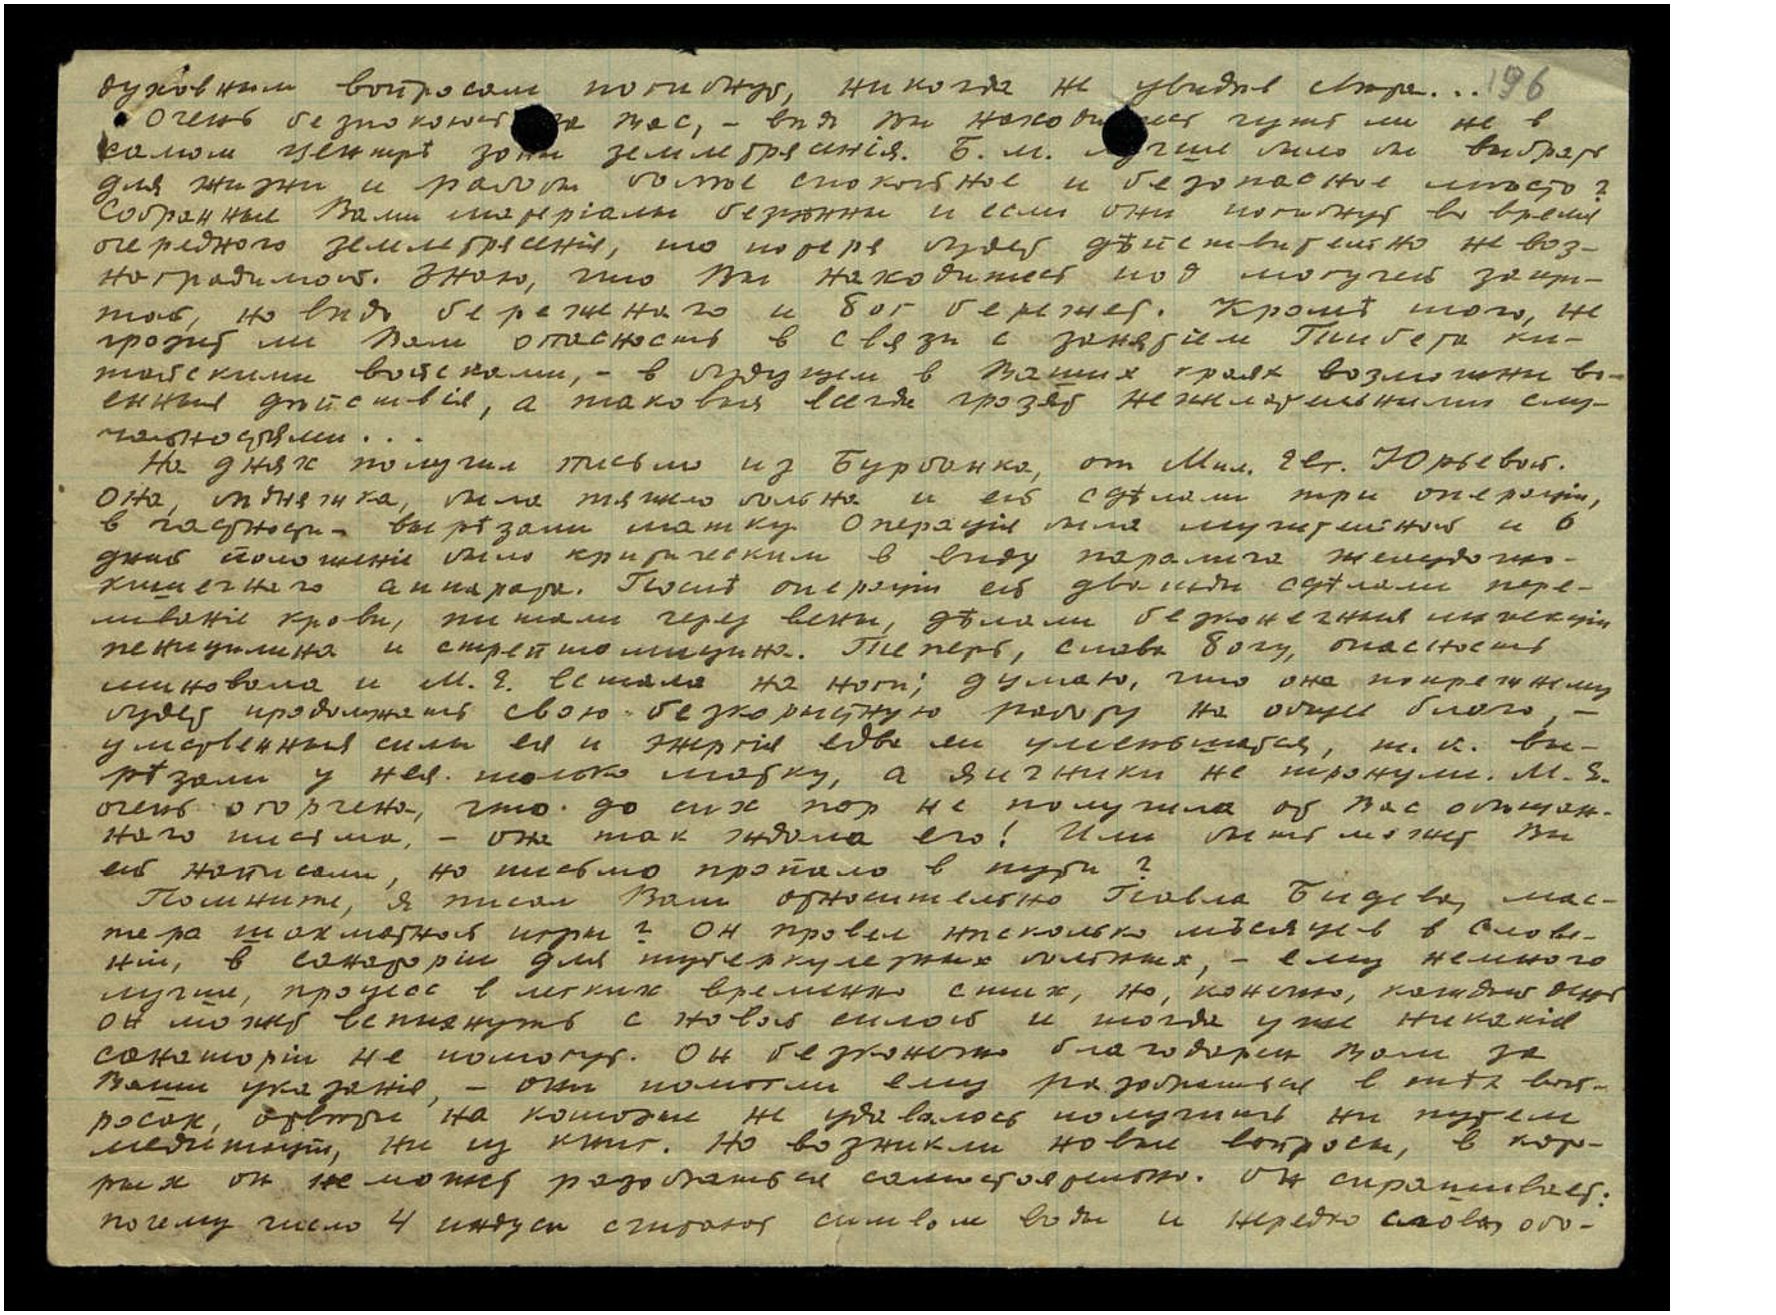 духовным вопросам погибнут, никогда не увидев света... 196
Очень безпокоюсь за Вас, – ведь Вы находитесь чуть ли не в
самом центрѣ зоны землетрясенія. Б. м. лучше было бы выбрать
для жизни и работы более спокойное и безопасное место?
Собранные Вами матеріалы безценны и если они погибнут во время
очередного землетрясенія, то потеря будет дѣйствительно невоз-
наградимой. Знаю, что Вы находитесь под могучей защи-
той, но ведь береженаго и Бог бережет. Кромѣ того, не
грозит ли Вам опасность в связи с занятіем Тибета ки-
тайскими войсками, – в будущем в Ваших краях возможны во-
енныя дѣйствія, а таковыя всегда грозят нежелательными слу-
чайностями...
На днях получил письмо из Бурбанка, от Мил. Евг. Юрьевой.
Она, бѣдняжка, была тяжело больна и ей сдѣлали три операціи,
в частности – вырѣзали матку. Операція была мучительной и 6
дней положеніе было критическим в виду паралича желудочно-
кишечнаго аппарата. Послѣ операціи ей дважды сдѣлали пере-
ливаніе крови, питали через вены, дѣлали безконечныя инъекціи
пеницилина и стрептомицина. Теперь, слава Богу, опасность
миновала и М. Е. встала на ноги; думаю, что она попрежнему
будет продолжать свою безкорыстную работу на общее благо, –
умственныя силы ея и энергія едва ли уменьшатся, т. к. вы-
рѣзали у нея только матку, а яичники не тронули. М. Е.
очень огорчена, что до сих пор не получила от Вас обѣщан-
наго письма, – она так ждала его! Или быть может Вы
ей написали, но письмо пропало в пути?
Помните, я писал Вам относительно Павла Бидева, мас-
тера шахматной игры? Он провел нѣсколько мѣсяцев в Слове-
ніи, в санаторіи для туберкулезных больных, – ему немного
лучше, процесс в легких временно стих, но, конечно, каждый день
он может вспыхнуть с новой силой и тогда уже никакія
санаторіи не помогут. Он безконечно благодарен Вам за
Ваши указанія, – они помогли ему разобраться в тѣх воп-
росах, отвѣты на которые не удавалось получить ни путем
медитаціи, ни из книг. Но возникли новые вопросы, в кото-
рых он не может разобраться самостоятельно. Он спрашивает:
почему число 4 индусы считают символом воды и нередко слова, обо-